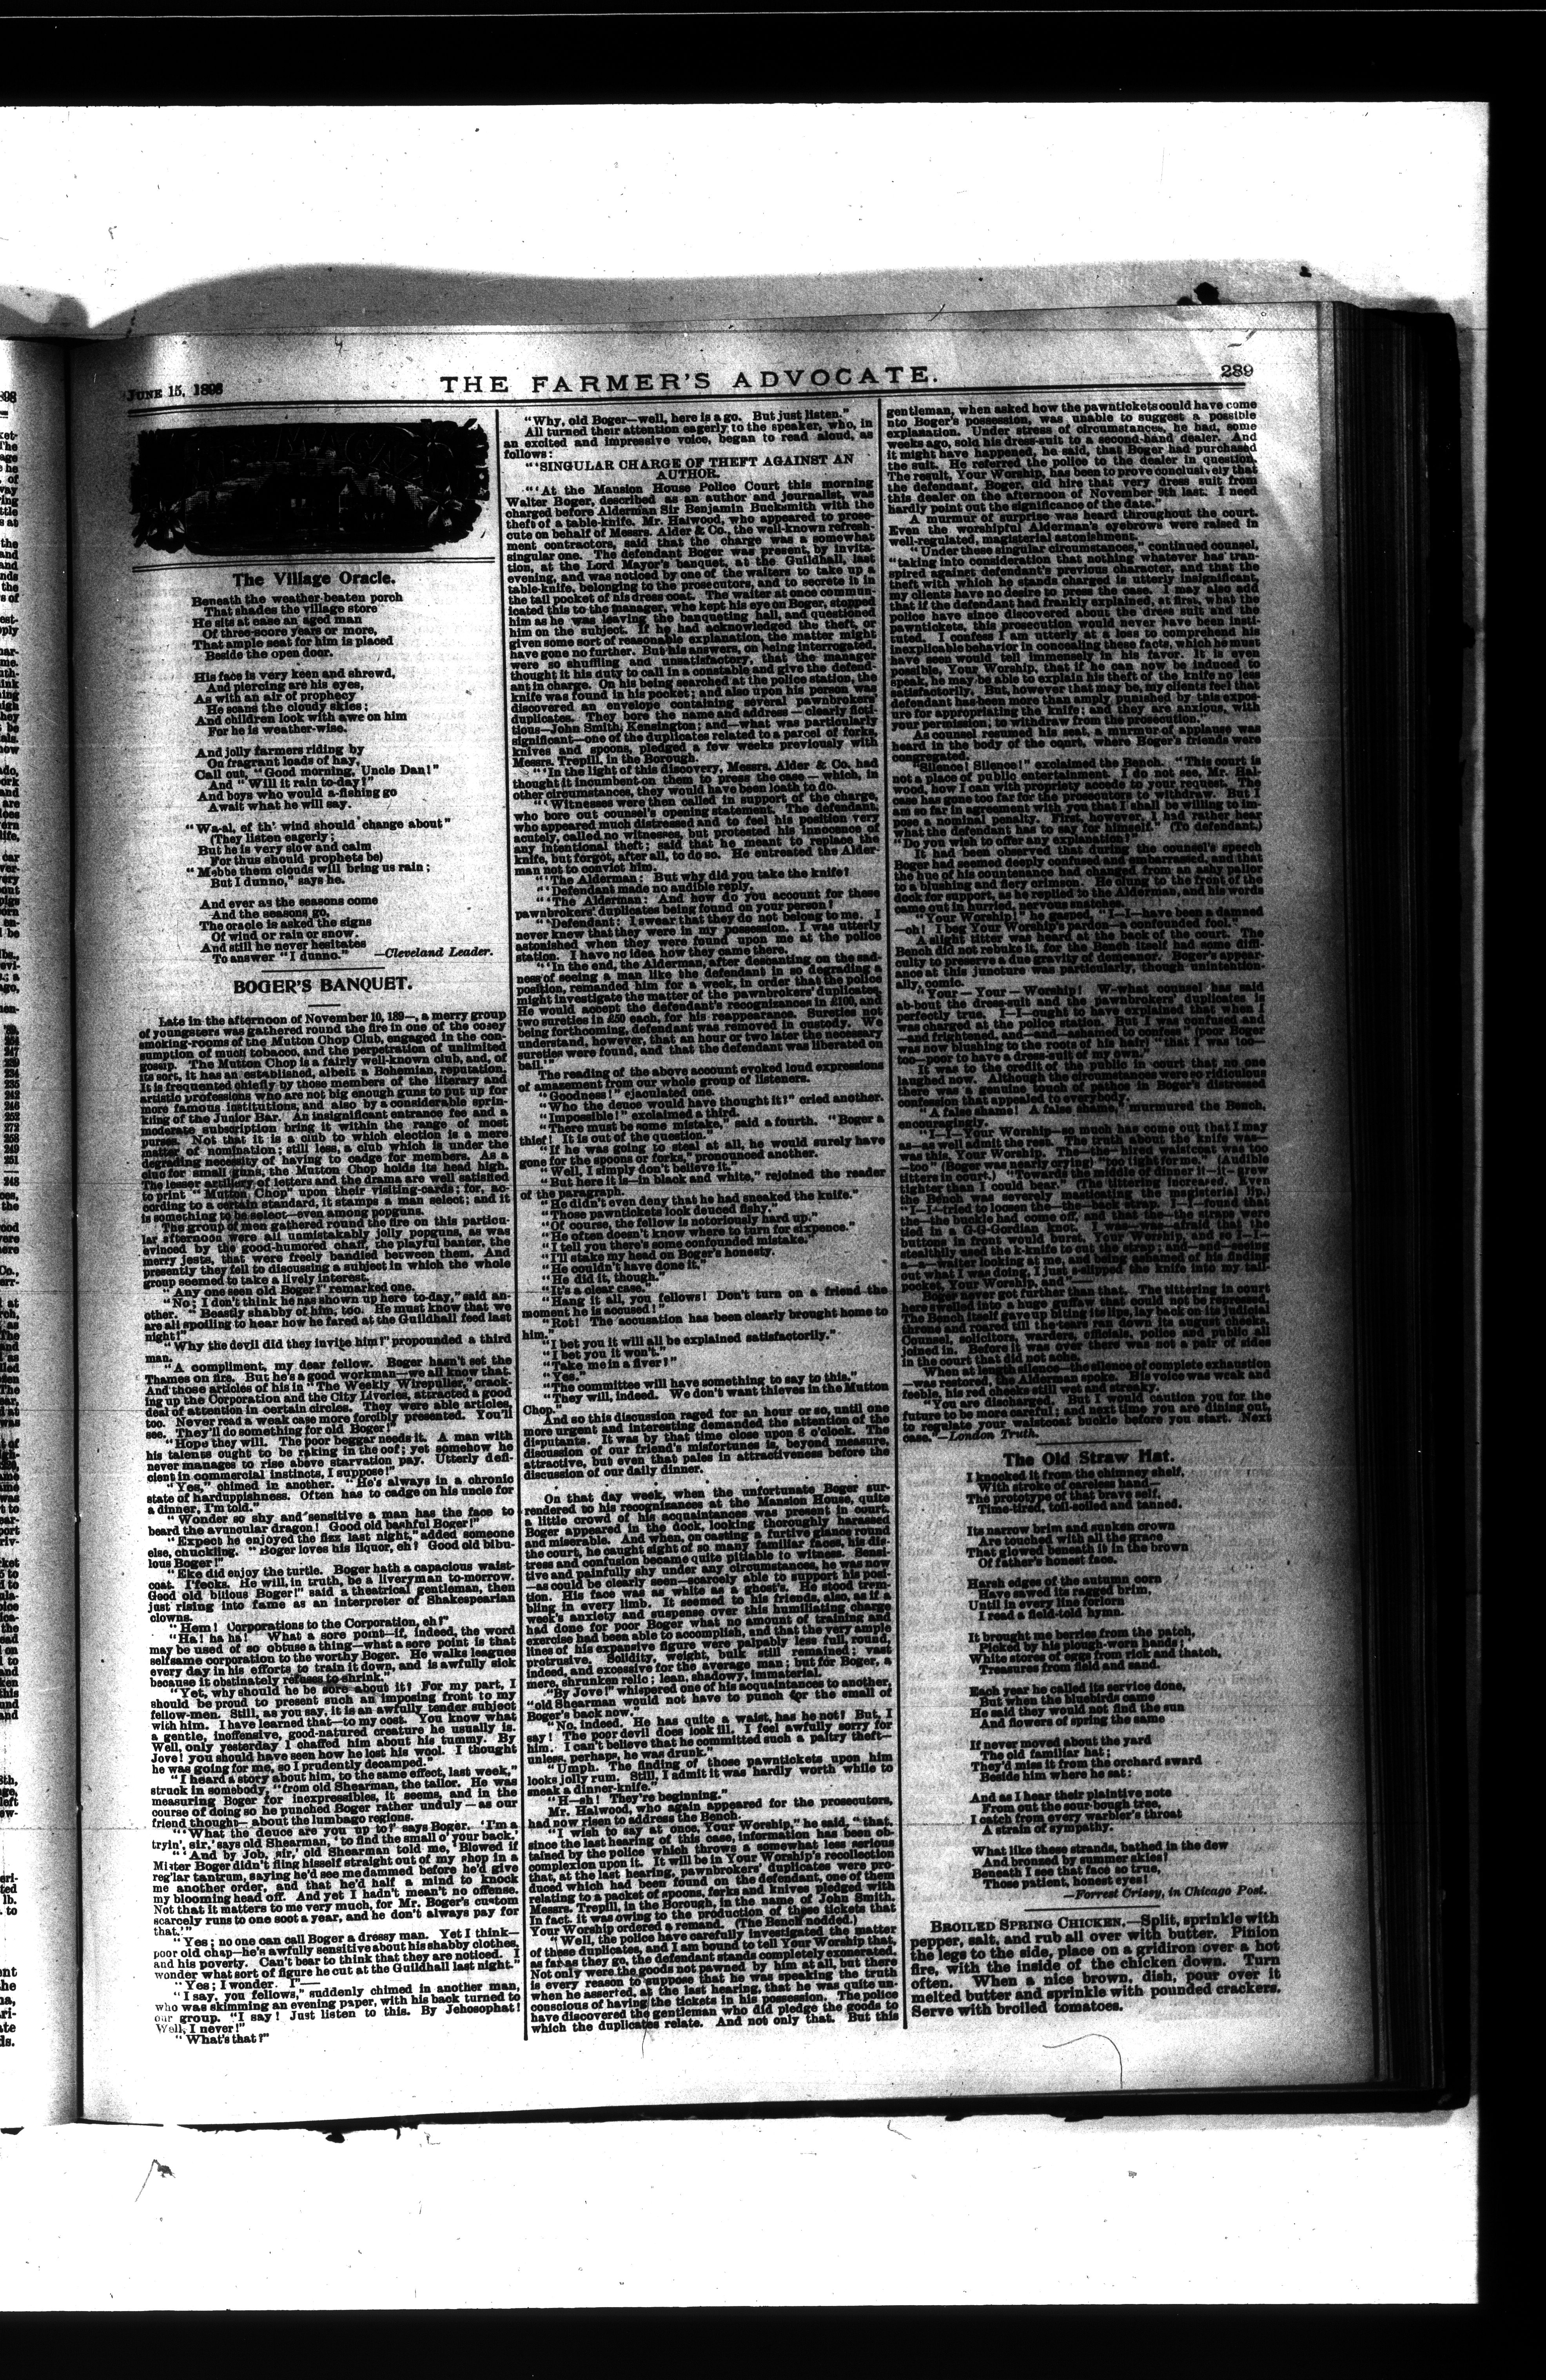 JUNE 15, 1898
THE FARMER'S ADVOCATE.
289
The Village Oracle.
Beneath the weather-beaten porch
That shades the village store
He sits at ease an aged man
Of three-score years or more,
That ample seat for him is placed
Beside the open door.
His face is very keen and shrewd,
And piercing are his eyes,
As with an air of prophecy
He scans the cloudy skies;
And children look with awe on him
For he is weather-wise.
And jolly farmers riding by
On fragrant loads of hay,
Call out, "Good morning, Uncle Dan!"
And "Will it rain to-day?"
And boys who would a-fishing go
Await what he will say.
"Wa-al, ef th' wind should change about"
(They listen eagerly;
But he is very slow and calm
For thus should prophets be)
"Mebbe them clouds will bring us rain;
But I dunno," says he.
And ever as the seasons come
And the seasons go,
The oracle is asked the signs
Of wind or rain or snow.
And still he never hesitates
To answer "I dunno." —Cleveland Leader.
BOGER'S BANQUET.
Late in the afternoon of November 10, 189—, a merry group
of youngsters was gathered round the fire in one of the cosey
smoking-rooms of the Mutton Chop Club, engaged in the con-
sumption of much tobacco, and the perpetration of unlimited
gossip. The Mutton Chop is a fairly well-known club, and, of
its sort, it has an established, albeit a Bohemian, reputation.
It is frequented chiefly by those members of the literary and
artistic professions who are not big enough guns to put up for
more famous institutions; and also by a considerable sprin-
kling of the Junior Bar. An insignificant entrance fee and a
moderate subscription bring it within the range of most
purses. Not that it is a club to which election is a mere
matter of nomination; still less, a club which is under the
degrading necessity of having to cadge for members. As a
cino for small guns, the Mutton Chop holds its head high.
The lesser artillery of letters and the drama are well satisfied
to print "Mutton Chop" upon their visiting-cards; for, ac-
cording to a certain standard, it stamps a man select; and it
is something to be select—even among popguns.
The group of men gathered round the fire on this particu-
lar afternoon were all unmistakably jolly popguns, as was
evinced by the good-humored chaff, the playful banter, the
merry jests, that were freely bandied between them. And
presently they fell to discussing a subject in which the whole
group seemed to take a lively interest.
"Any one seen old Boger?" remarked one.
"No; I don't think he has shown up here to-day," said an-
other. "Beastly shabby of him, too. He must know that we
are all spoiling to hear how he fared at the Guildhall feed last
night!"
"Why the devil did they invite him?" propounded a third
man.
"A compliment, my dear fellow. Boger hasn't set the
Thames on fire. But he's a good workman—we all know that.
And those articles of his in "The Weekly Wirepuller," crack-
ing up the Corporation and the City Liveries, attracted a good
deal of attention in certain circles. They were able articles,
too. Never read a weak case more forcibly presented. You'll
see. They'll do something for old Boger!"
"Hope they will. The poor beggar needs it. A man with
his talents ought to be raking in the oof; yet somehow he
never manages to rise above starvation pay. Utterly defi-
cient in commercial instincts, I suppose!"
"Yes," chimed in another. "He's always in a chronic
state of harduppishness. Often has to cadge on his uncle for
a dinner, I'm told."
"Wonder so shy and sensitive a man has the face to
beard the avuncular dragon! Good old bashful Boger!"
"Expect he enjoyed the fizz last night," added someone
else, chuckling. "Boger loves his liquor, eh? Good old bibu-
lous Boger!"
"Eke did enjoy the turtle. Boger hath a capacious waist-
coat. I'fecks. He will, in truth, be a liveryman to-morrow.
Good old bilious Boger!" said a theatrical gentleman, then
just rising into fame as an interpreter of Shakespearian
clowns.
"Hem! Corporations to the Corporation, eh?"
"Ha! ha ha! What a sore point—if, indeed, the word
may be used of so obtuse a thing—what a sore point is that
selfsame corporation to the worthy Boger. He walks leagues
every day in his efforts to train it down, and is awfully sick
because it obstinately refuses to shrink."
"Yet, why should he be sore about it? For my part, I
should be proud to present such an imposing front to my
fellow-men. Still, as you say, it is an awfully tender subject
with him. I have learned that—to my cost. You know what
a gentle, ineffensive, good-natured creature he usually is.
Well, only yesterday I chaffed him about his tummy. By
Jove! you should have seen how he lost his wool. I thought
he was going for me, so I prudently decamped."
"I heard a story about him, to the same effect, last week,"
struck in somebody, "from old Shearman, the tailor. He was
measuring Boger for inexpressibles, it seems, and in the
course of doing so he punched Boger rather unduly—as our
friend thought—about the lumbago regions.
"'What the deuce are you up to?' says Boger. 'I'm a
tryin', sir,' says old Shearman, 'to find the small o' your back.'
"'And by Job, sir,' old Shearman told me, 'Blowed if
Mister Boger didn't fling hisself straight out of my shop in a
reg'lar tantrum, saying he'd see me dammed before he'd give
me another order, and that he'd half a mind to knock
my blooming head off. And yet I hadn't mean't no offense.
Not that it matters to me very much, for Mr. Boger's custom
scarcely runs to one soot a year, and he don't always pay for
that.'"
"Yes; no one can call Boger a dressy man. Yet I think—
poor old chap—he's awfully sensitive about his shabby clothes,
and his poverty. Can't bear to think that they are noticed. I
wonder what sort of figure he cut at the Guildhall last night."
"Yes; I wonder. I"—
"I say, you fellows," suddenly chimed in another man,
who was skimming an evening paper, with his back turned to
our group. "I say! Just listen to this. By Jehosophat!
Well, I never!"
"What's that?"
"Why, old Boger—well, here is a go. But just listen."
All turned their attention eagerly to the speaker, who, in
an excited and impressive voice, began to read aloud, as
follows:
"'SINGULAR CHARGE OF THEFT AGAINST AN
AUTHOR.
"'At the Mansion House Police Court this morning
Walter Boger, described as an author and journalist, was
charged before Alderman Sir Benjamin Bucksmith with the
theft of a table-knife. Mr. Halwood, who appeared to prose-
cute on behalf of Messrs. Alder & Co., the well-known refresh-
ment contractors, said that the charge was a somewhat
singular one. The defendant Boger was present, by invita-
tion, at the Lord Mayor's banquet, at the Guildhall, last
evening, and was noticed by one of the waiters to take up a
table-knife, belonging to the prosecutors, and to secrete it in
the tail pocket of his dress coat. The waiter at once commun-
icated this to the manager, who kept his eye on Boger, stopped
him as he was leaving the banqueting hall, and questioned
him on the subject. If he had acknowledged the theft, or
given some sort of reasonable explanation, the matter might
have gone no further. But his answers, on being interrogated,
were so shuffling and unsatisfactory, that the manager
thought it his duty to call in a constable and give the defend-
ant in charge. On his being searched at the police station, the
knife was found in his pocket; and also upon his person was
discovered an envelope containing several pawnbrokers'
duplicates. They bore the name and address—clearly ficti-
tious—John Smith, Kensington; and—what was particularly
significant—one of the duplicates related to a parcel of forks,
knives and spoons, pledged a few weeks previously with
Messrs. Trepill, in the Borough.
"'In the light of this discovery, Messrs. Alder & Co. had
thought it incumbent on them to press the case—which, in
other circumstances, they would have been loath to do.
"'Witnesses were then called in support of the charge,
who bore out counsel's opening statement. The defendant,
who appeared much distressed and to feel his position very
acutely, called no witnesses, but protested his innocence of
any intentional theft; said that he meant to replace the
knife, but forgot, after all, to do so. He entreated the Alder-
man not to convict him.
"'The Alderman: But why did you take the knife?
"'Defendant made no audible reply.
"'The Alderman: And how do you account for these
pawnbrokers' duplicates being found on your person?
"'Defendant: I swear that they do not belong to me. I
never knew that they were in my possession. I was utterly
astonished when they were found upon me at the police
station. I have no idea how they came there.
"'In the end, the Alderman, after descanting on the sad-
ness of seeing a man like the defendant in so degrading a
position, remanded him for a week, in order that the police
might investigate the matter of the pawnbrokers' duplicates.
He would accept the defendant's recognizances in £100, and
two sureties in £50 each, for his reappearance. Sureties not
being forthcoming, defendant was removed in custody. We
understand, however, that an hour or two later the necessary
sureties were found, and that the defendant was liberated on
bail.'"
The reading of the above account evoked loud expressions
of amazement from our whole group of listeners.
"Goodness!" ejaculated one.
"Who the deuce would have thought it?" cried another.
"Impossible!" exclaimed a third.
"There must be some mistake," said a fourth. "Boger a
thief! It is out of the question."
"If he was going to steal at all, he would surely have
gone for the spoons or forks," pronounced another.
"Well, I simply don't believe it."
"But here it is—in black and white," rejoined the reader
of the paragraph.
"He didn't even deny that he had sneaked the knife."
"Those pawntickets look deuced fishy."
"Of course, the fellow is notoriously hard up."
"He often doesn't know where to turn for sixpence."
"I tell you there's some confounded mistake."
"I'll stake my head on Boger's honesty.
"He couldn't have done it."
"He did it, though."
"It's a clear case."
"Hang it all, you fellows! Don't turn on a friend the
moment he is accused!"
"Rot! The accusation has been clearly brought home to
him."
"I bet you it will all be explained satisfactorily."
"I bet you it won't."
"Take me in a fiver?"
"Yes."
"The committee will have something to say to this."
"They will, indeed. We don't want thieves in the Mutton
Chop."
And so this discussion raged for an hour or so, until one
more urgent and interesting demanded the attention of the
disputants. It was by that time close upon 8 o'clock. The
discussion of our friend's misfortunes is, beyond measure,
attractive, but even that pales in attractiveness before the
discussion of our daily dinner.
On that day week, when the unfortunate Boger sur-
rendered to his recognizances at the Mansion House, quite
a little crowd of his acquaintances was present in court.
Boger appeared in the dock, looking thoroughly harassed
and miserable. And when, on casting a furtive glance round
the court, he caught sight of so many familiar faces, his dis-
tress and confusion became quite pitiable to witness. Sensi-
tive and painfully shy under any circumstances, he was now
—as could be clearly seen—scarcely able to support his posi-
tion. His face was as white as a ghost's. He stood trem-
bling in every limb. It seemed to his friends, also, as if a
week's anxiety and suspense over this humiliating charge
had done for poor Boger what no amount of training and
exercise had been able to accomplish, and that the very ample
lines of his expansive figure were palpably less full, round,
protrusive. Solidity, weight, bulk still remained; vast
indeed, and excessive for the average man; but for Boger, a
mere, shrunken relic; lean, shadowy, immaterial.
"By Jove!" whispered one of his acquaintances to another,
"old Shearman would not have to punch for the small of
Boger's back now."
"No, indeed. He has quite a waist, has he not? But, I
say! The poor devil does look ill. I feel awfully sorry for
him. I can't believe that he committed such a paltry theft—
unless, perhaps, he was drunk."
"Umph. The finding of those pawntickets upon him
looks jolly rum. Still, I admit it was hardly worth while to
sneak a dinner-knife."
"H—sh! They're beginning."
Mr. Halwood, who again appeared for the prosecutors,
had now risen to address the Bench.
"I wish to say at once, Your Worship," he said, "that,
since the last hearing of this case, information has been ob-
tained by the police which throws a somewhat less serious
complexion upon it. It will be in Your Worship's recollection
that, at the last hearing, pawnbrokers' duplicates were pro-
duced which had been found on the defendant, one of them
relating to a packet of spoons, forks and knives pledged with
Messrs. Trepill, in the Borough, in the name of John Smith.
In fact, it was owing to the production of these tickets that
Your Worship ordered a remand. (The Bench nodded.)
"Well, the police have carefully investigated the matter
of these duplicates, and I am bound to tell Your Worship that,
as far as they go, the defendant stands completely exonerated.
Not only were the goods not pawned by him at all, but there
is every reason to suppose that he was speaking the truth
when he asserted, at the last hearing, that he was quite un-
conscious of having the tickets in his possession. The police
have discovered the gentleman who did pledge the goods to
which the duplicates relate. And not only that. But this
gentleman, when asked how the pawntickets could have come
nto Boger's possession, was unable to suggest a possible
explanation. Under stress of circumstances, he had, some
weeks ago, sold his dress-suit to a second-hand dealer. And
it might have happened, he said, that Boger had purchased
the suit. He referred the police to the dealer in question.
The result, Your Worship, has been to prove conclusively that
the defendant, Boger, did hire that very dress suit from
this dealer on the afternoon of November 9th last. I need
hardly point out the significance of the date."
A murmur of surprise was heard throughout the court.
Even the worshipful Alderman's eyebrows were raised in
well-regulated, magisterial astonishment.
"Under these singular circumstances," continued counsel,
"taking into consideration that nothing whatever has tran-
spired against defendant's previous character, and that the
theft with which he stands charged is utterly insignificant,
my clients have no desire to press the case. I may also add
that if the defendant had frankly explained, at first, what the
police have since discovered about the dress suit and the
pawntickets, this prosecution would never have been insti-
tuted. I confess I am utterly at a loss to comprehend his
inexplicable behavior in concealing these facts, which he must
have seen would tell immensely in his favor. It is even
possible, Your Worship, that if he can now be induced to
speak, he may be able to explain his theft of the knife no less
satisfactorily. But, however that may be, my clients feel that
defendant has been more than amply punished by this expos-
ure for appropriating the knife; and they are anxious, with
your permission, to withdraw from the prosecution."
As counsel resumed his seat, a murmur of applause was
heard in the body of the court, where Boger's friends were
congregated.
"Silence! Silence!" exclaimed the Bench. "This court is
not a place of public entertainment. I do not see, Mr. Hal-
wood, how I can with propriety accede to your request. The
case has gone too far for the prosecutors to withdraw. But I
am so far in agreement with you that I shall be willing to im-
pose a nominal penalty. First, however, I had rather hear
what the defendant has to say for himself." (To defendant.)
"Do you wish to offer any explanation?"
It had been observed that during the counsel's speech
Boger had seemed deeply confused and embarrassed, and that
the hue of his countenance had changed from an ashy pallor
to a blushing and fiery crimson. He clung to the front of the
dock for support, as he replied to the Alderman, and his words
came out in hurried, nervous snatches.
"Your Worship!" he gasped, "I—I—have been a damned
—oh! I beg Your Worship's pardon—a confounded fool."
A slight titter was heard at the back of the court. The
Bench did not rebuke it, for the Bench itself had some diffi-
culty to preserve a due gravity of demeanor. Boger's appear-
ance at this juncture was particularly, though unintention-
ally, comic.
"Your—Your—Worship! W-what counsel has said
ab-bout the dress-suit and the pawnbrokers' duplicates is
perfectly true. I—I—ought to have explained that when I
was charged at the police station. But I was confused and
—and frightened, and—and—ashamed to confess" (poor Boger
was now blushing to the roots of his hair) "that I was too—
too—poor to have a dress-suit of my own."
It was to the credit of the public in court that no one
laughed now. Although the circumstances were so ridiculous
there was a genuine touch of pathos in Boger's distressed
confession that appealed to everybody.
"A false shame! A false shame," murmured the Bench,
encouragingly.
"I—I—Your Worship—so much has come out that I may
as—as well admit the rest. The truth about the knife was—
was this, Your Worship. The—the—hired waistcoat was too
—too" (Boger was nearly crying) "too tight for me." (Audible
titters in court.) "Towards the middle of dinner it—it—grew
tighter than I could bear." (The tittering increased. Even
the Bench was severely masticating the magisterial lip.)
"I—I—tried to loosen the—the—back strap. I—I—found that
the—the buckle had come off, and that the—the straps were
tied in a G-G-Gordian knot. I—was—was—afraid that the
buttons in front would burst, Your Worship, and so I—I—
stealthily used the k-knife to cut the strap; and—and—seeing
a—a—waiter looking at me, and being ashamed of his finding
out what I was doing, I just s-slipped the knife into my tail-
pocket, Your Worship, and"—
Boger never got further than that. The tittering in court
here swelled into a huge guffaw that could not be repressed.
The Bench itself gave up biting its lips, lay back on its judicial
throne and roared till the tears ran down its august cheeks.
Counsel, solicitors, warders, officials, police and public all
joined in. Before it was over there was not a pair of sides
in the court that did not ache.
When at length silence—the silence of complete exhaustion
—was restored, the Alderman spoke. His voice was weak and
feeble, his red cheeks still wet and streaky.
"You are discharged. But I would caution you for the
future to be more careful; and next time you are dining out,
to regulate your waistcoat buckle before you start. Next
case."—London Truth.
The Old Straw Hat.
I knocked it from the chimney shelf,
With stroke of careless hand—
The prototype of that brave self,
Time-tired, toil-soiled and tanned.
Its narrow brim and sunken crown
Are touched with all the grace
That glowed beneath it in the brown
Of father's honest face.
Harsh edges of the autumn corn
Have sawed its ragged brim,
Until in every line forlorn
I read a field-told hymn.
It brought me berries from the patch,
Picked by his plough-worn hands;
White stores of eggs from rick and thatch,
Treasures from field and sand.
Each year he called its service done,
But when the bluebirds came
He said they would not find the sun
And flowers of spring the same
If never moved about the yard
The old familiar hat;
They'd miss it from the orchard sward
Beside him where he sat;
And as I hear their plaintive note
From out the sour-bough tree,
I catch from every warbler's throat
A strain of sympathy.
What like these strands, bathed in the dew
And bronzed by summer skies!
Beneath I see that face so true,
Those patient, honest eyes!
—Forrest Crissy, in Chicago Post.
BROILED SPRING CHICKEN.—Split, sprinkle with
pepper, salt, and rub all over with butter. Pinion
the legs to the side, place on a gridiron over a hot
fire, with the inside of the chicken down. Turn
often. When a nice brown, dish, pour over it
melted butter and sprinkle with pounded crackers.
Serve with broiled tomatoes.